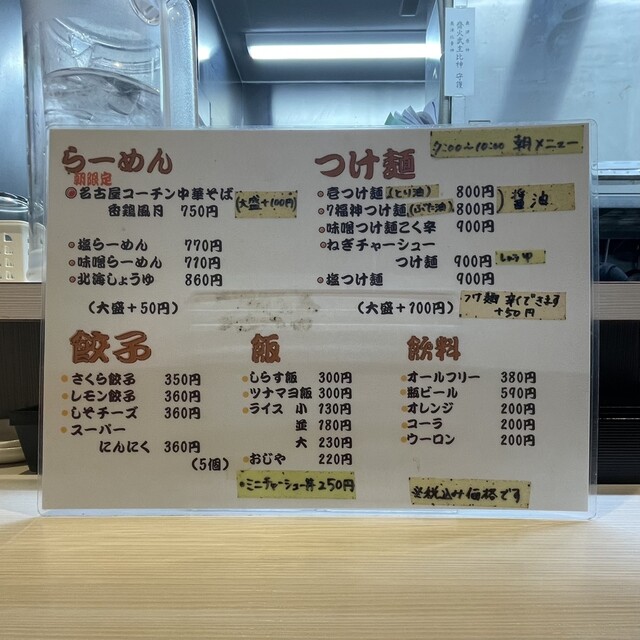 7:00〜10:00 朝メニュー
らーめん
朝限定
名古屋コーチン中華そば
香鶏風月 750円
(大盛+100円)
塩らーめん 770円
味噌らーめん 770円
北海しょうゆ 860円
(大盛+50円)
つけ麺
壱つけ麺(とり油) 800円
7福神つけ麺(ぶた油) 800円
醤油
味噌つけ麺こく辛 900円
ねぎチャーシュー
つけ麺 900円 しょうゆ
塩つけ麺 900円
(大盛+100円)
つけ麺 辛くできます
+50円
餃子
さくら餃子 350円
レモン餃子 360円
しそチーズ 360円
スーパー
にんにく 360円
(5個)
飯
しらす飯 300円
ツナマヨ飯 300円
ライス 小 130円
並 180円
大 230円
おじや 220円
ミニチャーシュー丼 250円
飲料
オールフリー 380円
瓶ビール 590円
オレンジ 200円
コーラ 200円
ウーロン 200円
※税込み価格です